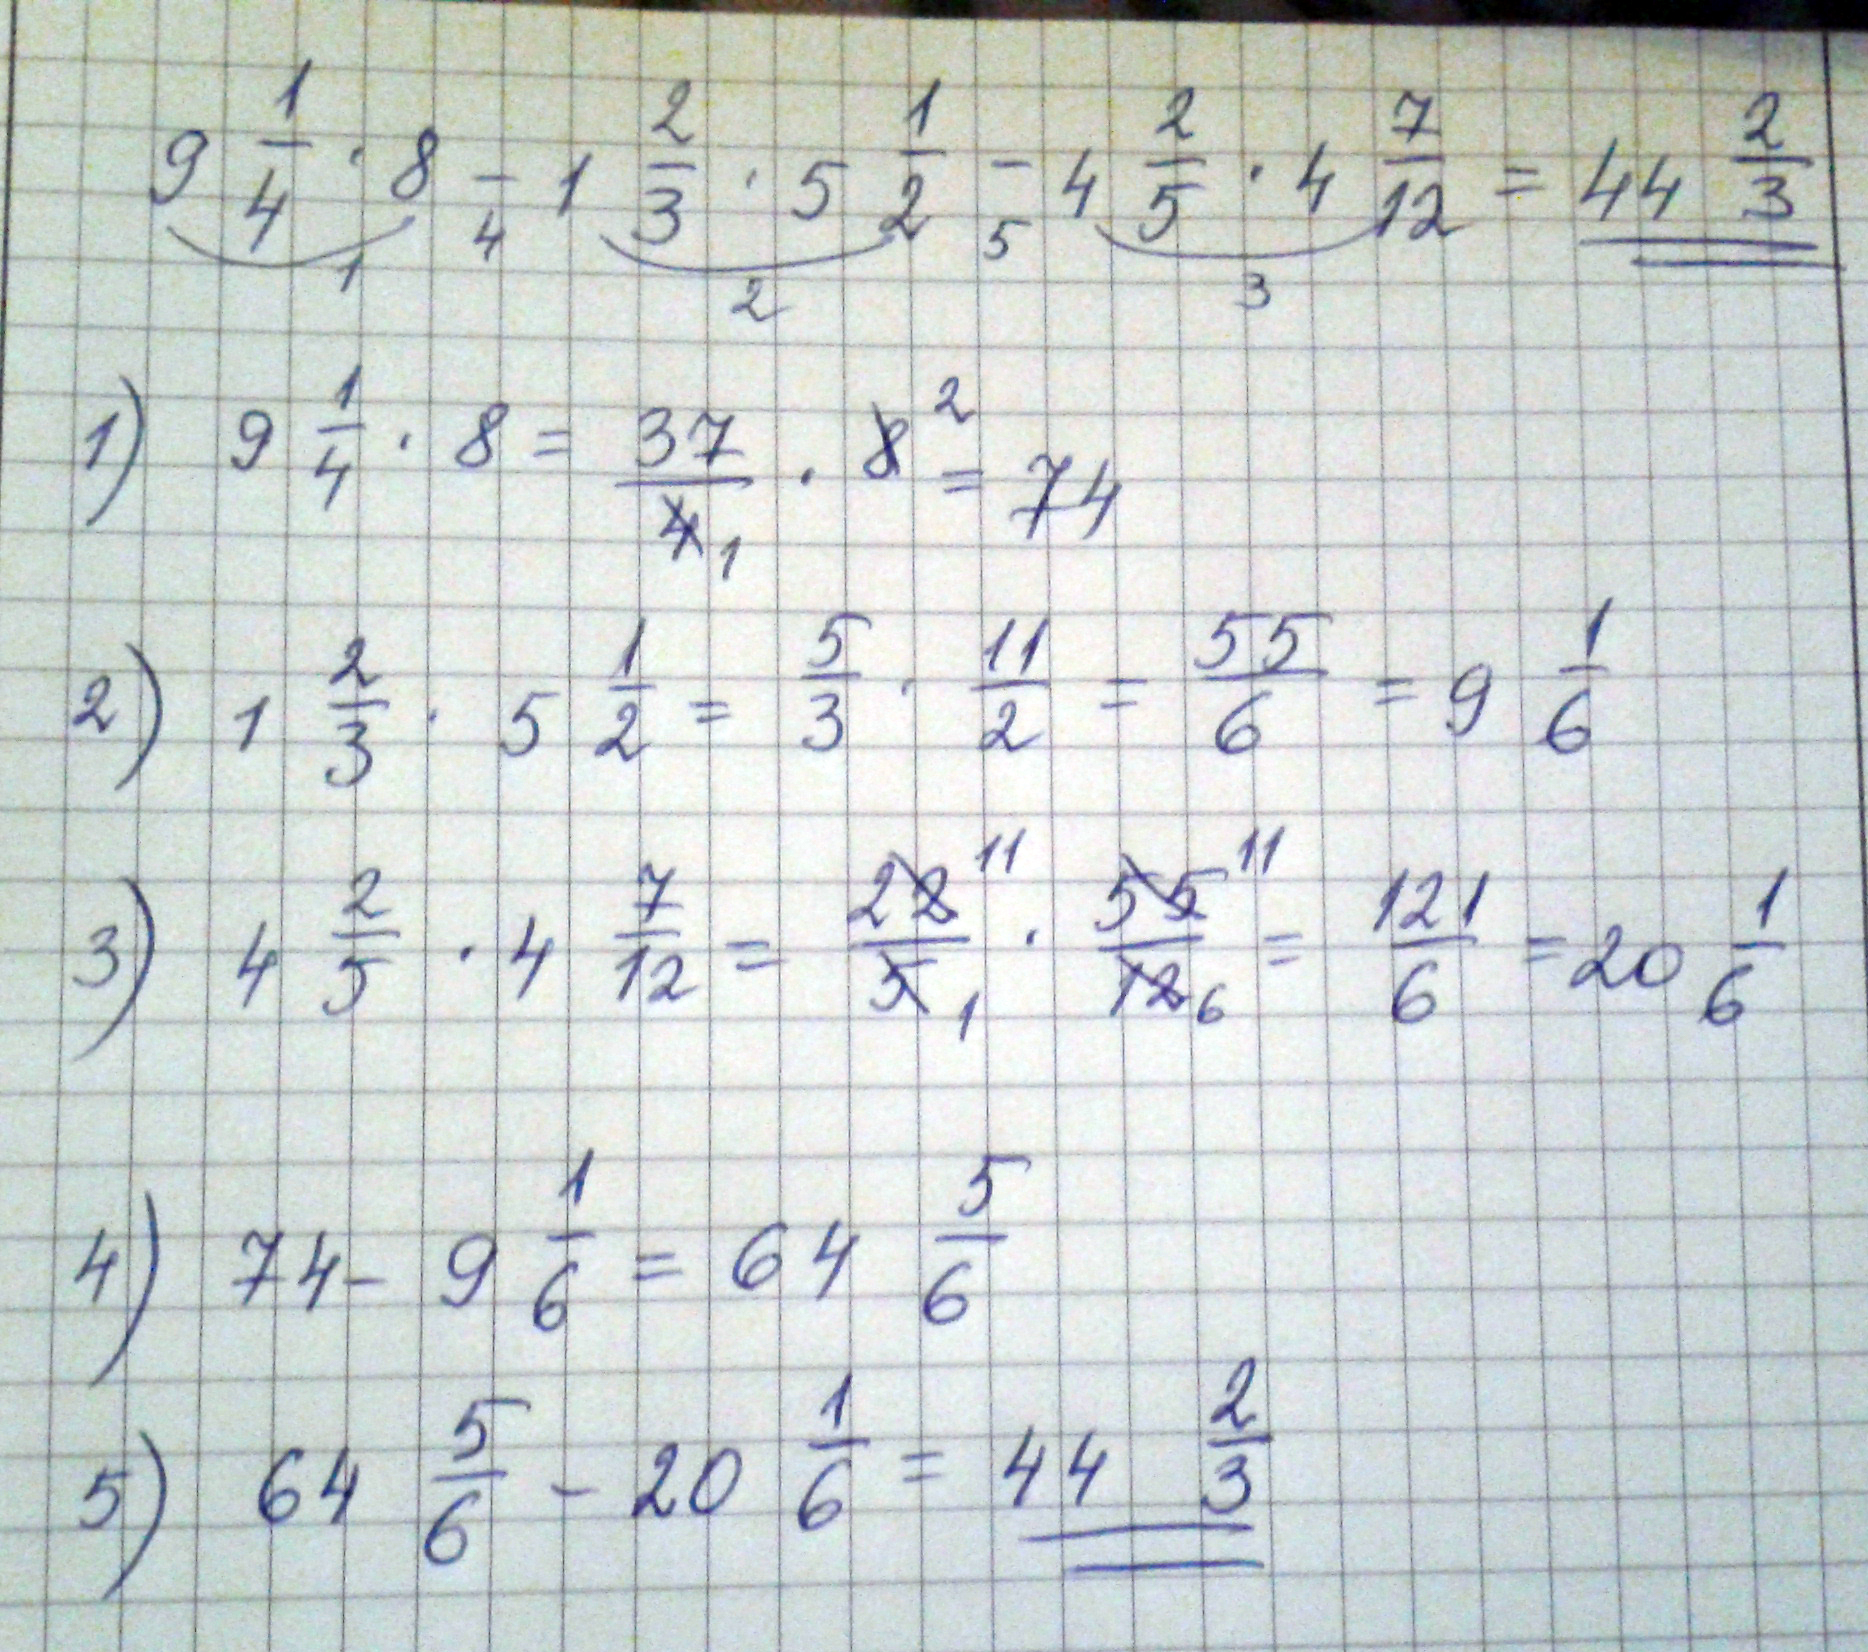 9 1/4 · 8 - 1 2/3 · 5 1/2 - 4 2/5 · 4 7/12 = 44 2/3
1 4 2 5 3
1) 9 1/4 · 8 = 37/4 1 · 8 2 = 74
2) 1 2/3 · 5 1/2 = 5/3 · 11/2 = 55/6 = 9 1/6
3) 4 2/5 · 4 7/12 = 22 11/5 1 · 55 11/12 6 = 121/6 = 20 1/6
4) 74 - 9 1/6 = 64 5/6
5) 64 5/6 - 20 1/6 = 44 2/3